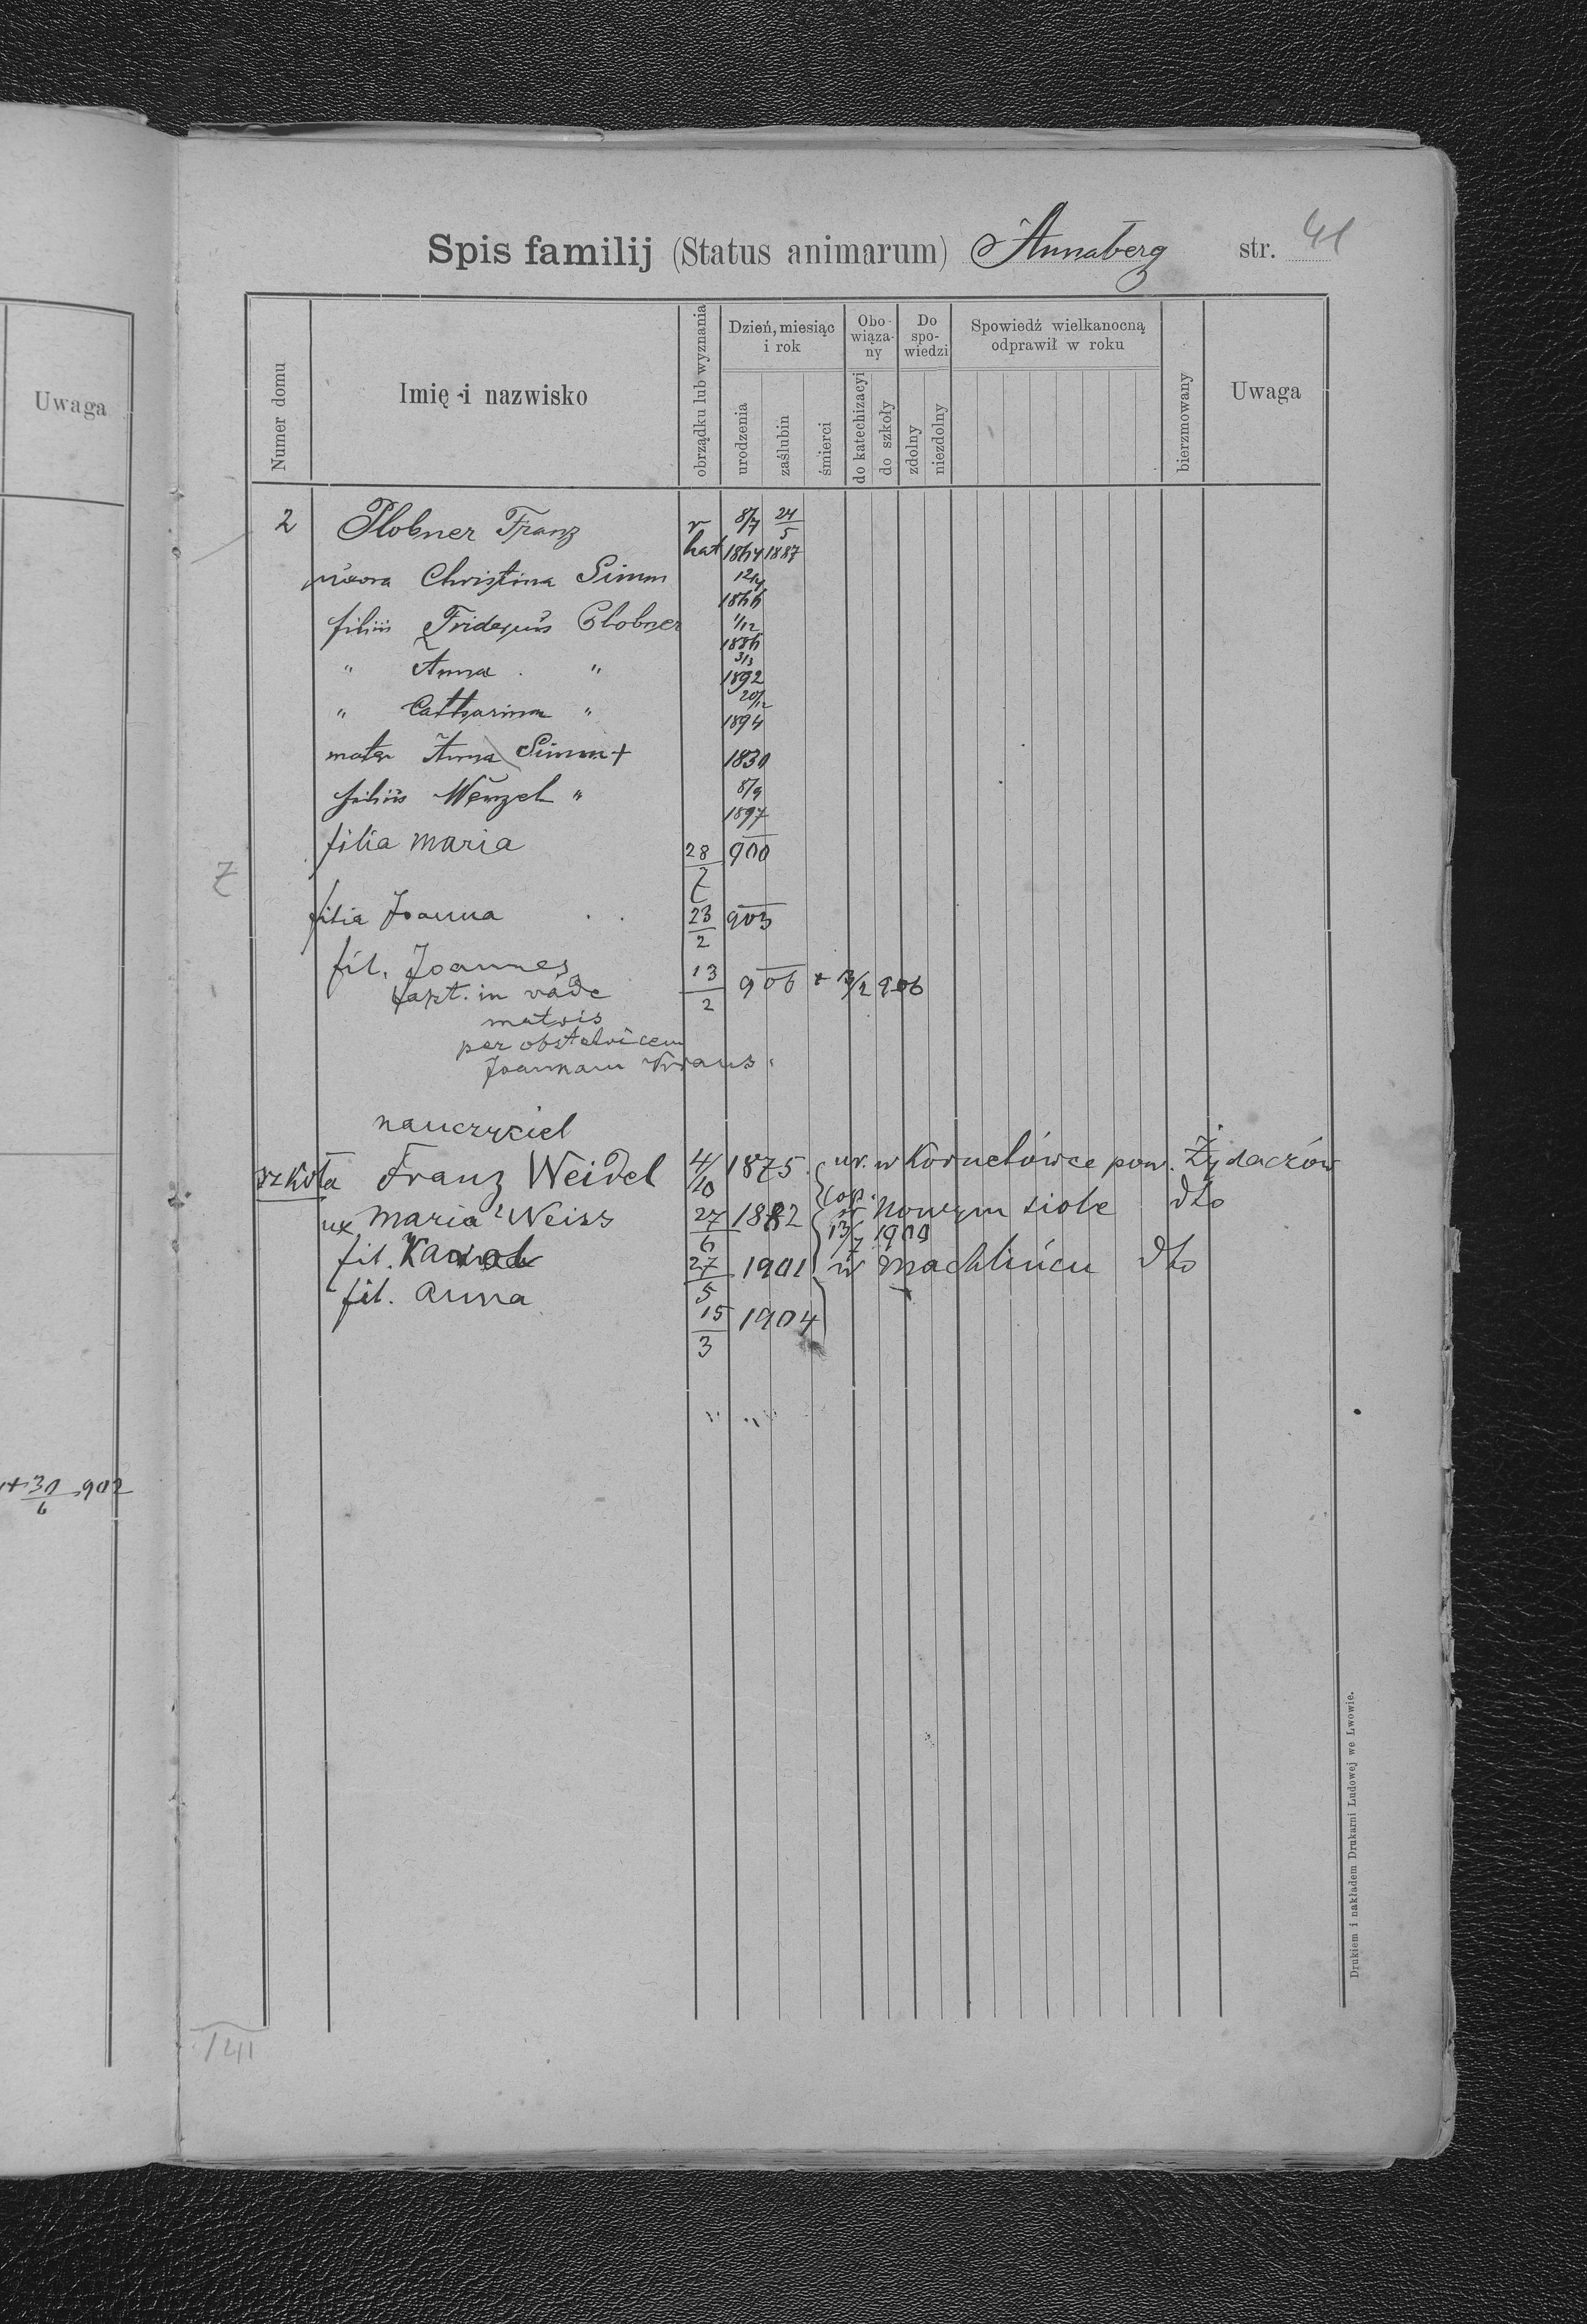 Spis familij (Status animarum) Annaberg str. 41
Uwaga
Numer domu
Imię i nazwisko
obrządku lub wyznania
Dzień, miesiąc i rok
urodzenia
zaślubin
śmierci
Obowiązany
do katechizacyi
do szkoły
Do spowiedzi
zdolny
niezdolny
Spowiedź wielkanocną odprawił w roku
bierzmowany
Uwaga
2 Plobner Franz r kat 8/7 1864 24/5 1887
uxora Christina Simm 1866
filiis Plobner 1/12 1886
" Anna " 3/3 1892
" Catharina " 20/12 1894
mater Anna Simm + 1830
filiis Wenzel " 8/9 1897
filia Maria 28/7 900
7
filia Joanna 23/2 903
fil. Joannes 13/2 906 + 13/2 906
bapt. in
matris
per obstetricem
Joannam Kraus.
nauczyciel
szkoła Franz Weidel 4/10 1875 ur. w Kornelówce pow. Żydaczów
ux Maria Weiss 27/6 1882 cop. w Nowym siole dto
13/7 1900
fil. Karol 27/5 1901 w Machlińcu dto
fil. Anna 15/3 1904
+ 30/6 902
141
Drukiem i nakładem Drukarni Ludowej we Lwowie.